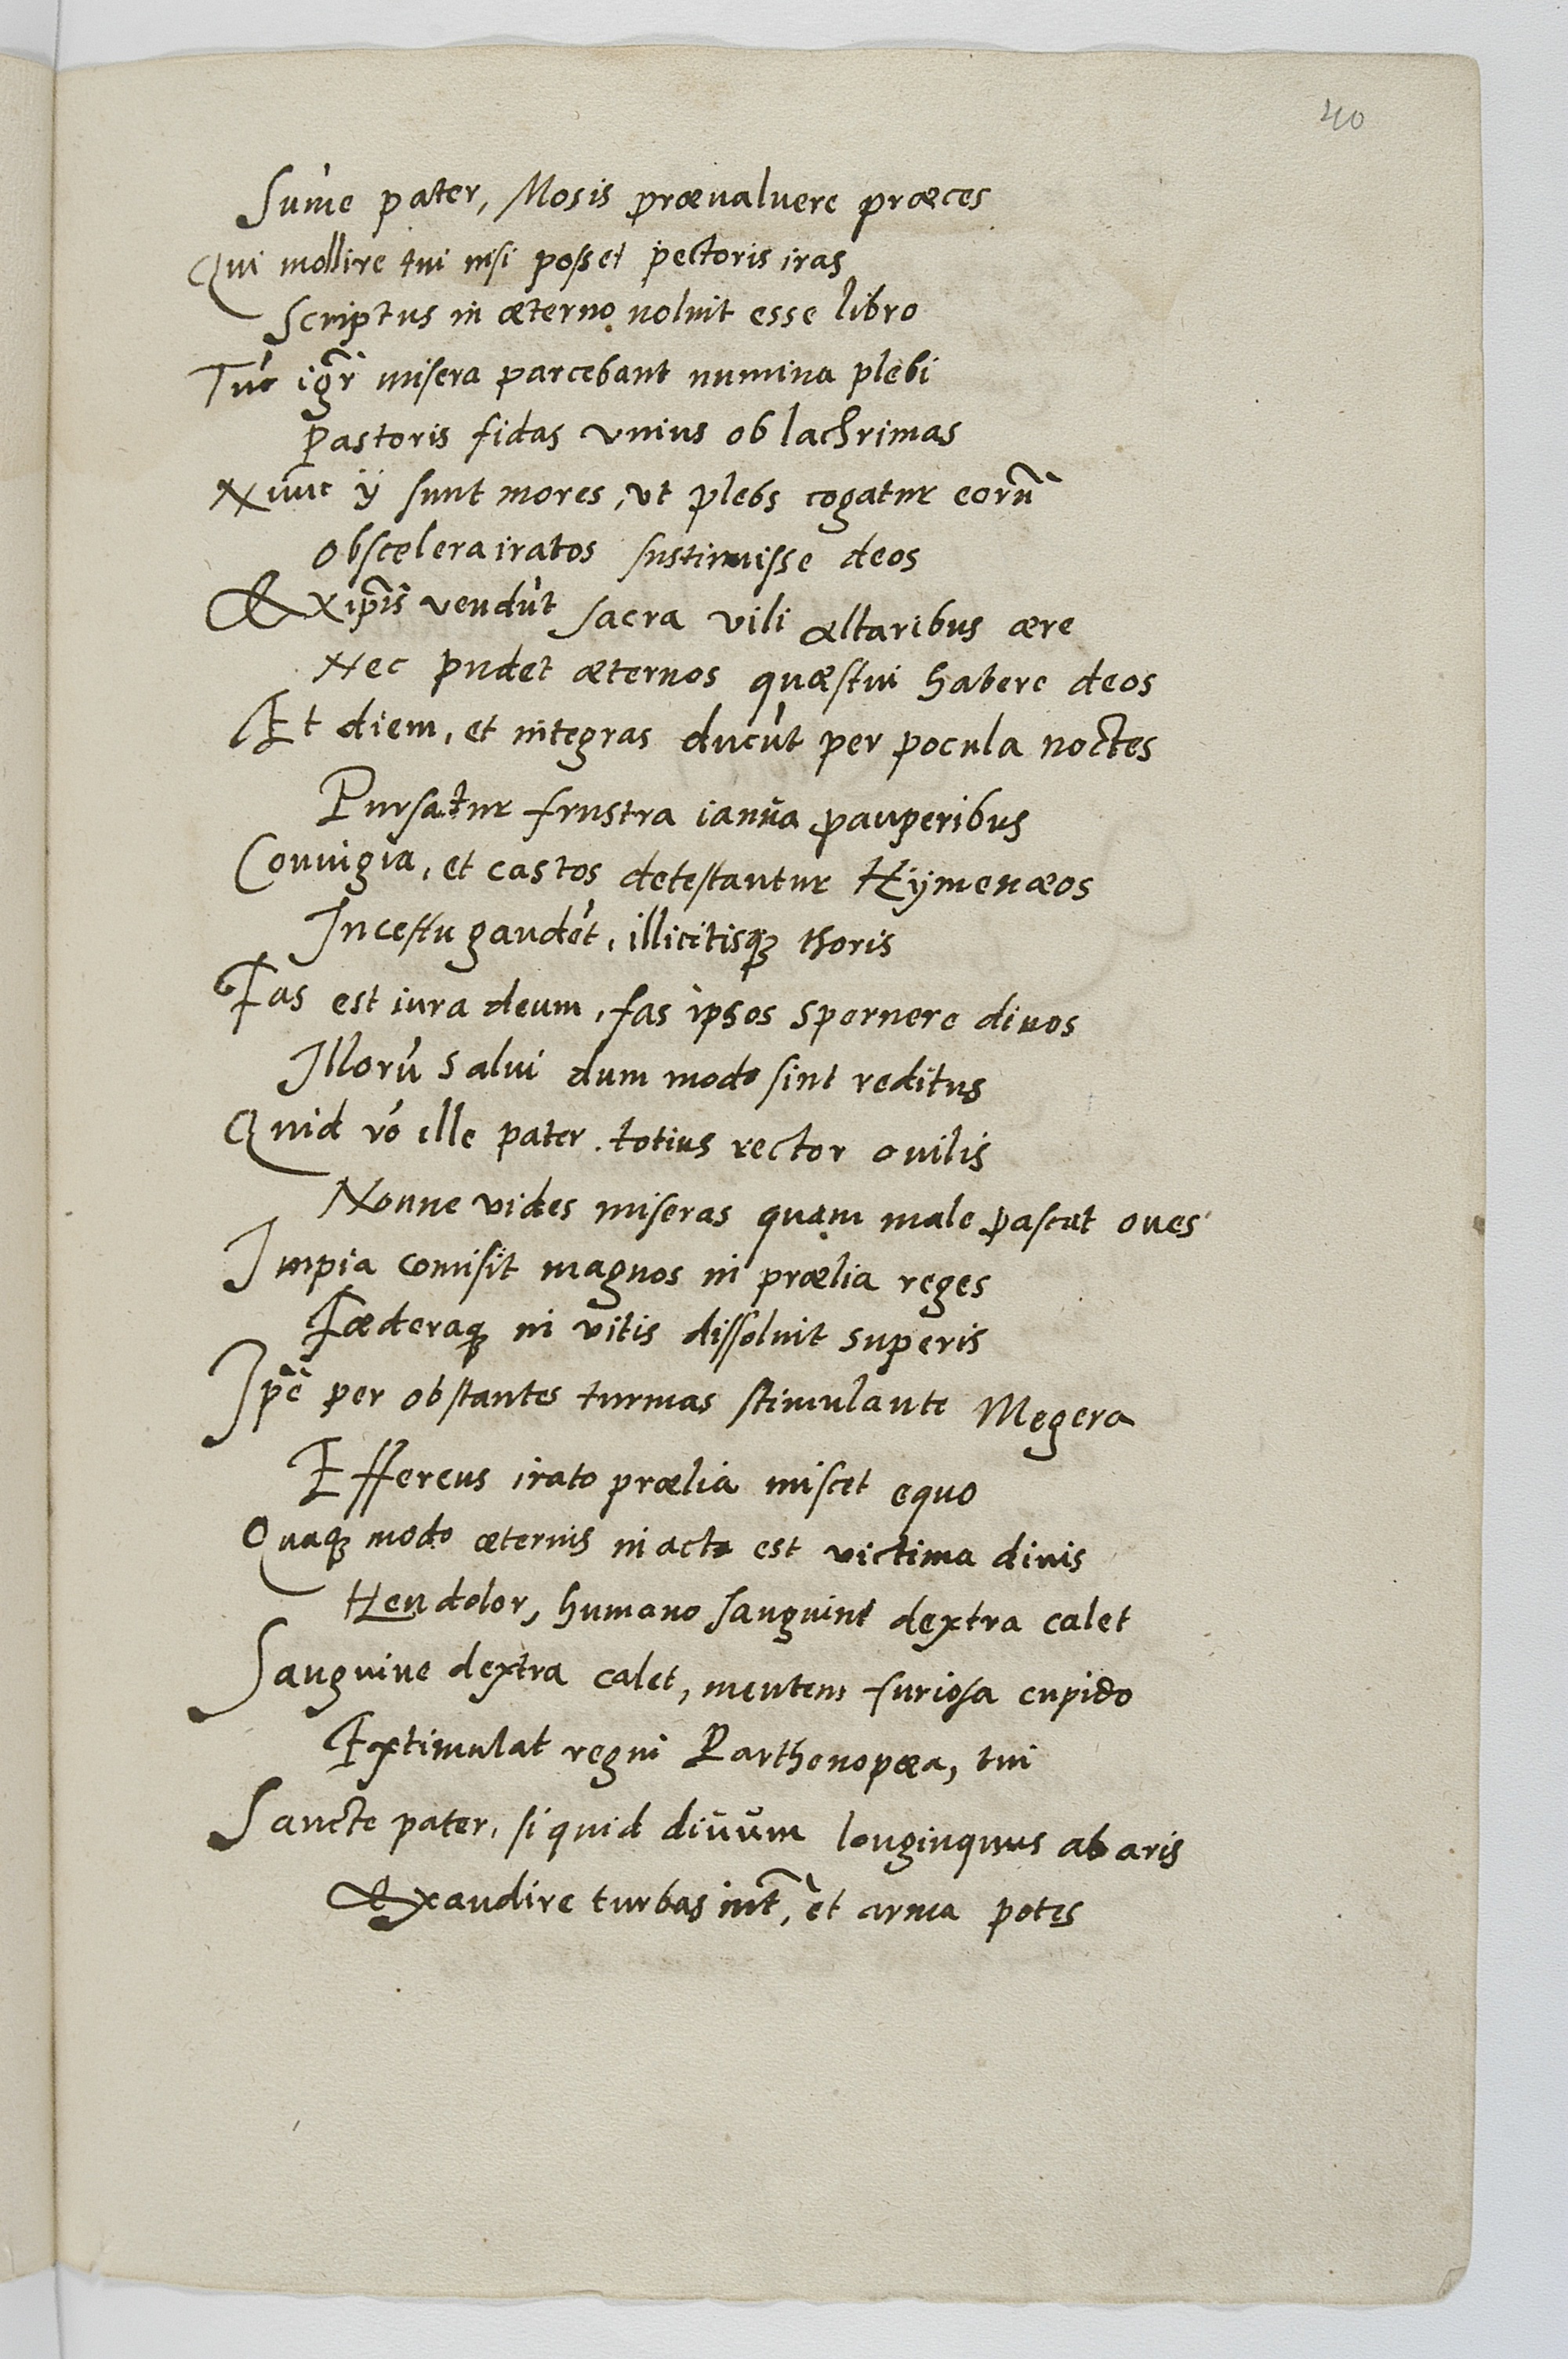 40
Sum̄e pater, Mosis prævaluere præces
Qui mollire tui nisi posset pectoris iras
Scriptus in æterno noluit esse libro
Tūc igr̄ misera parcebant numina plebi
Pastoris fidas unius ob lachrimas
Nunc ij sunt mores, ut plebs cogatur eorū
Ob scelera iratos sustinuisse deos
Ex ipīs vendūt sacra vili altaribus ære
Nec pudet æternos quæstui habere deos
Et diem, et integras ducūt per pocula noctes
Pursatur frustra ianua pauperibus
Coniugia, et castos detestantur Hÿmenæos
Incestu gaudēt, illicitisq; thoris
Fas est iura deum, fas ipsos spernere divos
Illorū salvi dum modo sint reditus
Quid vō ille pater totius rector ovilis
Nonne vides miseras quam male pascat oves
Impia com̄isit magnos in prælia reges
Fæderaq; in vitis dissolvit superis
Ip̄e per obstantes turmas stimulante Megera
Effereus irato prælia miscet equo
Quaq; modo æternis mactā est victima divis
Heu dolor, humano sanguine dextra calet
Sanguine dextra calet, mentem furiosa cupido
Extimulat regni Parthenopæa, tui
Sancte pater, si quid divum longinquus ab aris
Exaudire turbas int̄, et arma potes